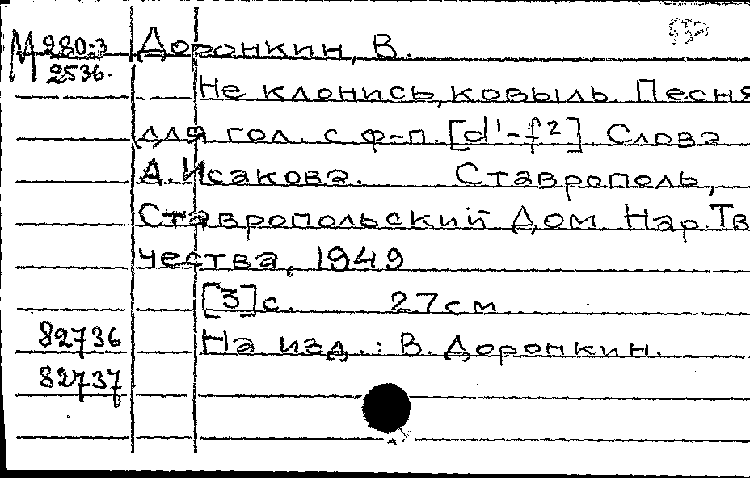 М 280-3
2536.
Доронкин, В.
Не клонись, ковыль. Песня
для гол. с ф-п. [d'-f²] Слова
А. Исакова. Ставрополь,
Ставропольский Дом Нар. Тв
чества, 1949
[3] с. 27 см
82736
На изд.: В. Доронкин.
82737